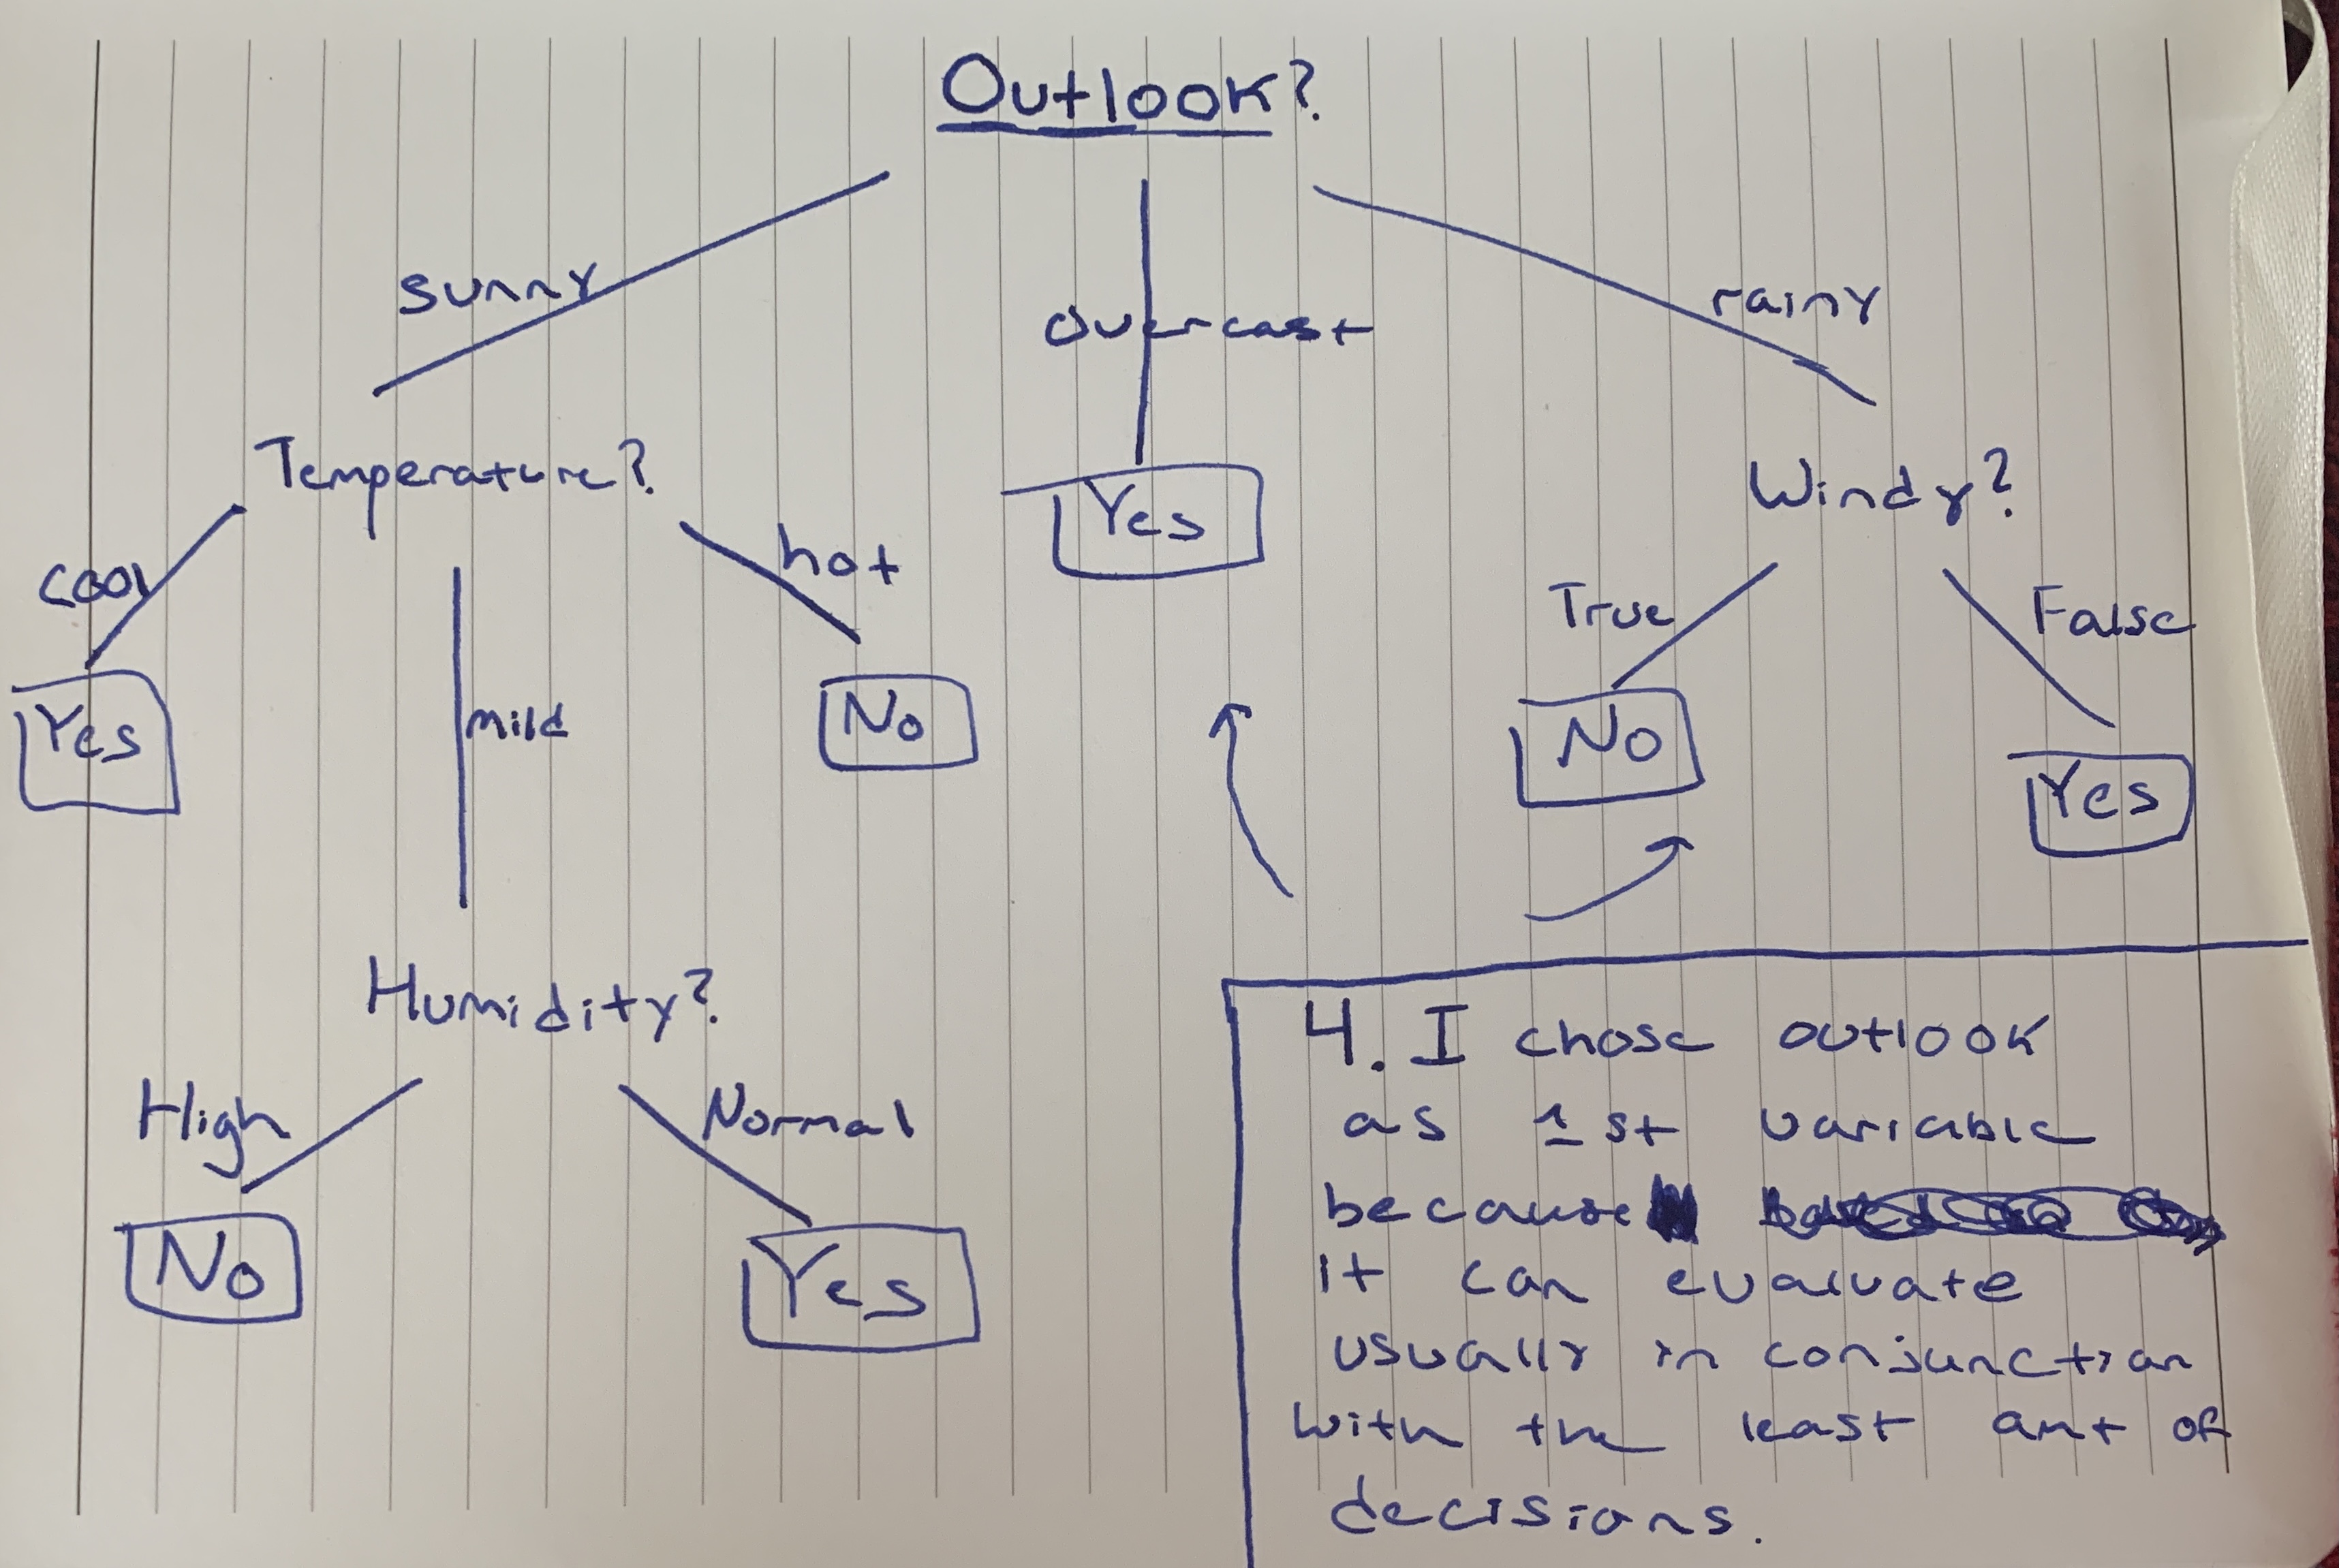 Outlook?
sunny
overcast
rainy
Temperature?
Windy?
cool
mild
hot
Yes
True
False
Yes
No
No
Yes
Humidity?
High
Normal
No
Yes
4. I chose outlook
as 1st variable
because
it can evaluate
usually in conjunction
with the least amt of
decisions.